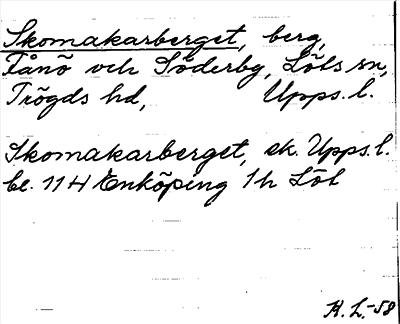 Skomakarberget, berg,
Fånö och Söderby, Löts sn,
Trögds hd, Upps. l.
Skomakarberget, ek. Upps. l.
bl. 11 H Enköping 1h Löt
H. L. -58